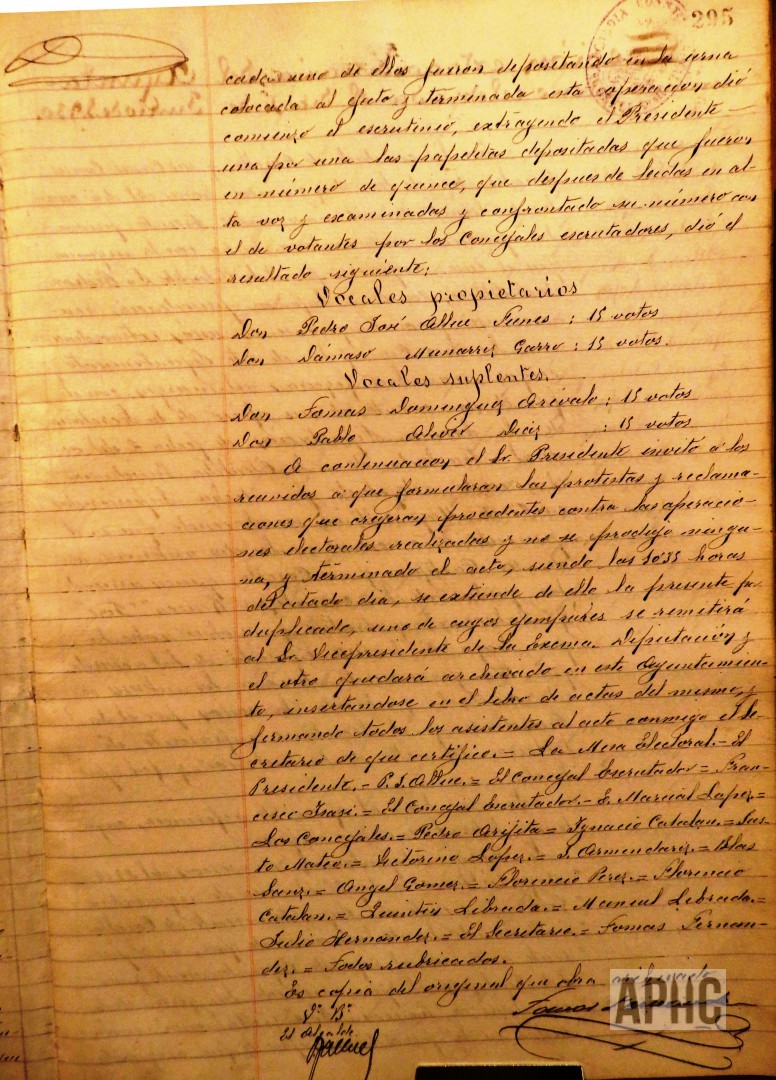 295
cada uno de ellos fueron depositando en la urna
colocada al efecto y terminada esta operacion dió
comienzo el escrutinio, extrayendo el Presidente
una por una las papeletas depositadas que fueron
en número de quince, que despues de leidas en al-
ta voz y examinadas y confrontado su número con
el de votantes por los Concejales escrutadores, dió el
resultado siguiente:
Vocales propietarios
Don Pedro José Allue Funes : 15 votos
Don Dámaso Munarriz Garro : 15 votos.
Vocales suplentes.
Don Tomas Dominguez Arévalo : 15 votos
Don Pablo Oliver Diez : 15 votos
A continuacion el Sr. Presidente invitó a los
reunidos a que formularan las protestas y reclama-
ciones que creyeran procedentes contra las operacio-
nes electorales realizadas y no se produjo ningu-
na, y terminado el acto, siendo las 10'35 horas
del citado dia, se extiende de ello la presente por
duplicado, uno de cuyos ejemplares se remitirá
al Sr. Vicepresidente de la Excma. Diputación y
el otro quedará archivado en este Ayuntamien-
to, insertandose en el libro de actas del mismo, y
firmando todos los asistentes al acto conmigo el Se-
cretario de que certifico.= La Mesa Electoral.= El
Presidente.- P. J. Allue.= El Concejal Escrutador = Fran-
cisco Isasi.= El Concejal Escrutador.- E. Marcial Lopez.=
Los Concejales.= Pedro Arijita = Ignacio Catalan.= Jus-
to Mateo.= Victorino Lopez.= J. Armendariz.= Blas
Sanz.= Angel Gomez.= Florencio Perez.= Florencio
Catalan.= Quintin Librada.= Manuel Librada.=
Julio Hernández.= El Secretario.= Tomas Fernan-
dez.= Todos rubricados.
Es copia del original que obra archivado
Vº Bº
El Alcalde
APHC